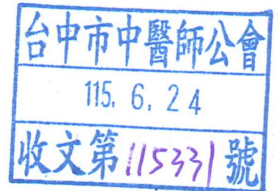 台中市中醫師公會
115. 6. 24
收文第115331號